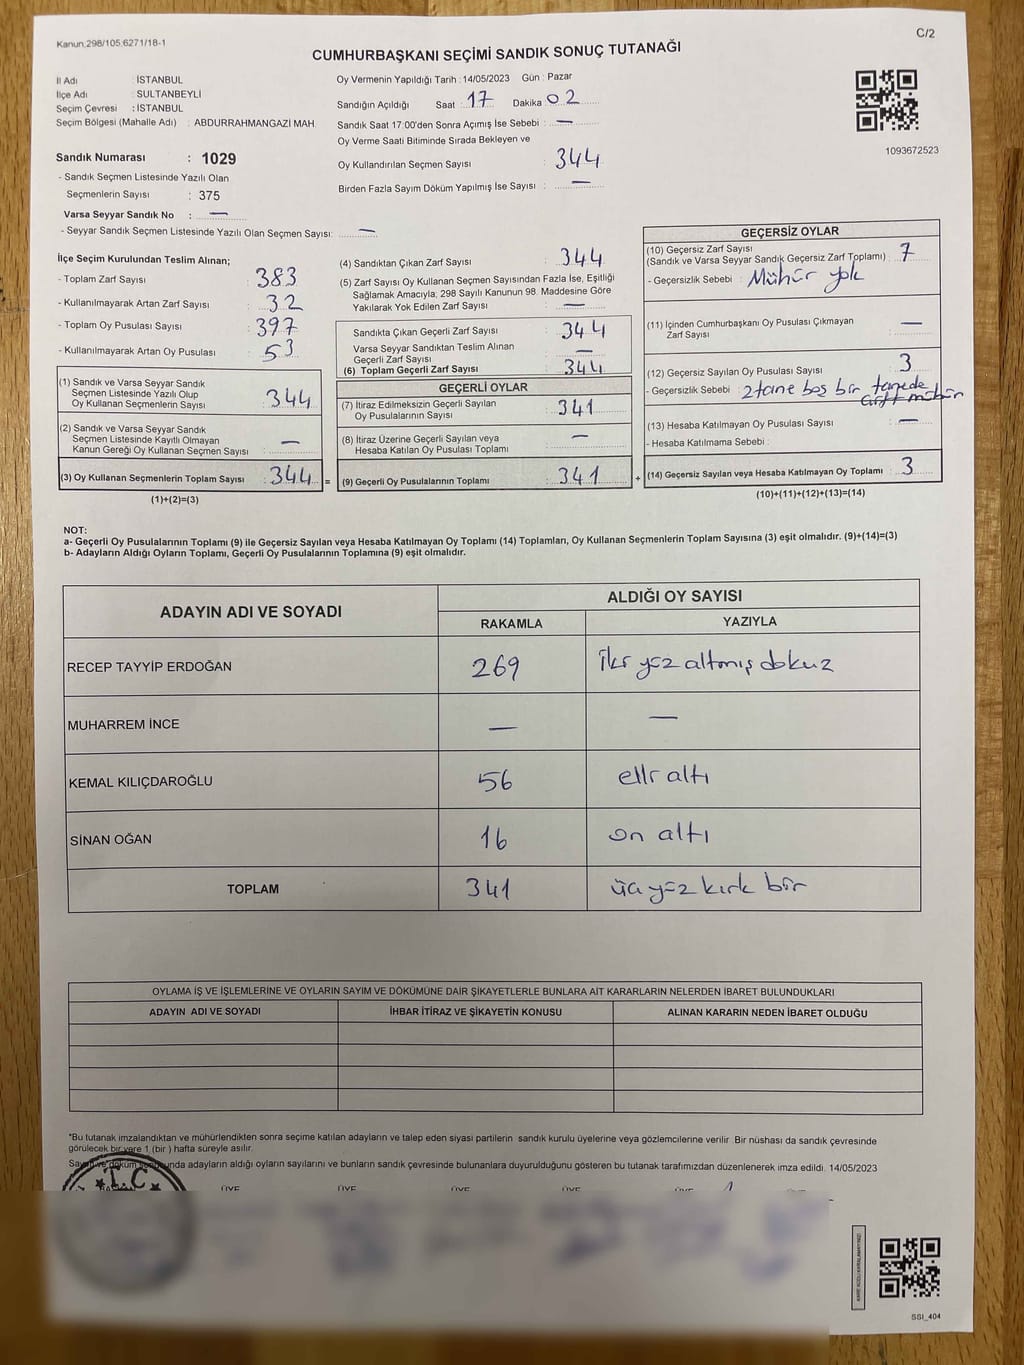 Kanun,298/105,6271/18-1
C/2
CUMHURBAŞKANI SEÇİMİ SANDIK SONUÇ TUTANAĞI
İl Adı : İSTANBUL
İlçe Adı : SULTANBEYLİ
Seçim Çevresi : İSTANBUL
Seçim Bölgesi (Mahalle Adı) : ABDURRAHMANGAZİ MAH.
Oy Vermenin Yapıldığı Tarih : 14/05/2023 Gün : Pazar
Sandığın Açıldığı Saat : 17 Dakika : 02
Sandık Saat 17:00'den Sonra Açımış İse Sebebi : —
Oy Verme Saati Bitiminde Sırada Bekleyen ve
Oy Kullandırılan Seçmen Sayısı : 344
Birden Fazla Sayım Döküm Yapılmış İse Sayısı : —
1093672523
Sandık Numarası : 1029
- Sandık Seçmen Listesinde Yazılı Olan
Seçmenlerin Sayısı : 375
Varsa Seyyar Sandık No : —
- Seyyar Sandık Seçmen Listesinde Yazılı Olan Seçmen Sayısı: —
İlçe Seçim Kurulundan Teslim Alınan;
- Toplam Zarf Sayısı : 383
- Kullanılmayarak Artan Zarf Sayısı : 32
- Toplam Oy Pusulası Sayısı : 397
- Kullanılmayarak Artan Oy Pusulası : 53
(1) Sandık ve Varsa Seyyar Sandık
Seçmen Listesinde Yazılı Olup
Oy Kullanan Seçmenlerin Sayısı : 344
(2) Sandık ve Varsa Seyyar Sandık
Seçmen Listesinde Kayıtlı Olmayan
Kanun Gereği Oy Kullanan Seçmen Sayısı : —
(3) Oy Kullanan Seçmenlerin Toplam Sayısı : 344 =
(1)+(2)=(3)
(4) Sandıktan Çıkan Zarf Sayısı : 344
(5) Zarf Sayısı Oy Kullanan Seçmen Sayısından Fazla İse, Eşitliği
Sağlamak Amacıyla; 298 Sayılı Kanunun 98. Maddesine Göre
Yakılarak Yok Edilen Zarf Sayısı : —
Sandıkta Çıkan Geçerli Zarf Sayısı : 344
Varsa Seyyar Sandıktan Teslim Alınan
Geçerli Zarf Sayısı : —
(6) Toplam Geçerli Zarf Sayısı : 344
GEÇERLİ OYLAR
(7) İtiraz Edilmeksizin Geçerli Sayılan
Oy Pusulalarının Sayısı : 341
(8) İtiraz Üzerine Geçerli Sayılan veya
Hesaba Katılan Oy Pusulası Toplamı : —
(9) Geçerli Oy Pusulalarının Toplamı : 341 +
GEÇERSİZ OYLAR
(10) Geçersiz Zarf Sayısı
(Sandık ve Varsa Seyyar Sandık Geçersiz Zarf Toplamı) : 7
- Geçersizlik Sebebi : Mühür yok
(11) İçinden Cumhurbaşkanı Oy Pusulası Çıkmayan
Zarf Sayısı : —
(12) Geçersiz Sayılan Oy Pusulası Sayısı : 3
- Geçersizlik Sebebi : 2 tane boş bir tanede
çift mühür
(13) Hesaba Katılmayan Oy Pusulası Sayısı : —
- Hesaba Katılmama Sebebi :
(14) Geçersiz Sayılan veya Hesaba Katılmayan Oy Toplamı : 3
(10)+(11)+(12)+(13)=(14)
NOT:
a- Geçerli Oy Pusulalarının Toplamı (9) ile Geçersiz Sayılan veya Hesaba Katılmayan Oy Toplamı (14) Toplamları, Oy Kullanan Seçmenlerin Toplam Sayısına (3) eşit olmalıdır. (9)+(14)=(3)
b- Adayların Aldığı Oyların Toplamı, Geçerli Oy Pusulalarının Toplamına (9) eşit olmalıdır.
ADAYIN ADI VE SOYADI
ALDIĞI OY SAYISI
RAKAMLA YAZIYLA
RECEP TAYYİP ERDOĞAN 269 İki yüz altmış dokuz
MUHARREM İNCE — —
KEMAL KILIÇDAROĞLU 56 elli altı
SİNAN OĞAN 16 on altı
TOPLAM 341 üç yüz kırk bir
OYLAMA İŞ VE İŞLEMLERİNE VE OYLARIN SAYIM VE DÖKÜMÜNE DAİR ŞİKAYETLERLE BUNLARA AİT KARARLARIN NELERDEN İBARET BULUNDUKLARI
ADAYIN ADI VE SOYADI İHBAR İTİRAZ VE ŞİKAYETİN KONUSU ALINAN KARARIN NEDEN İBARET OLDUĞU
*Bu tutanak imzalandıktan ve mühürlendikten sonra seçime katılan adayların ve talep eden siyasi partilerin sandık kurulu üyelerine veya gözlemcilerine verilir. Bir nüshası da sandık çevresinde
görülecek bir yere 1 (bir ) hafta süreyle asılır.
Sayım ve döküm sonucunda adayların aldığı oyların sayılarını ve bunların sandık çevresinde bulunanlara duyurulduğunu gösteren bu tutanak tarafımızdan düzenlenerek imza edildi. 14/05/2023
T.C
ÜYE ÜYE ÜYE ÜYE ÜYE
SSI_404